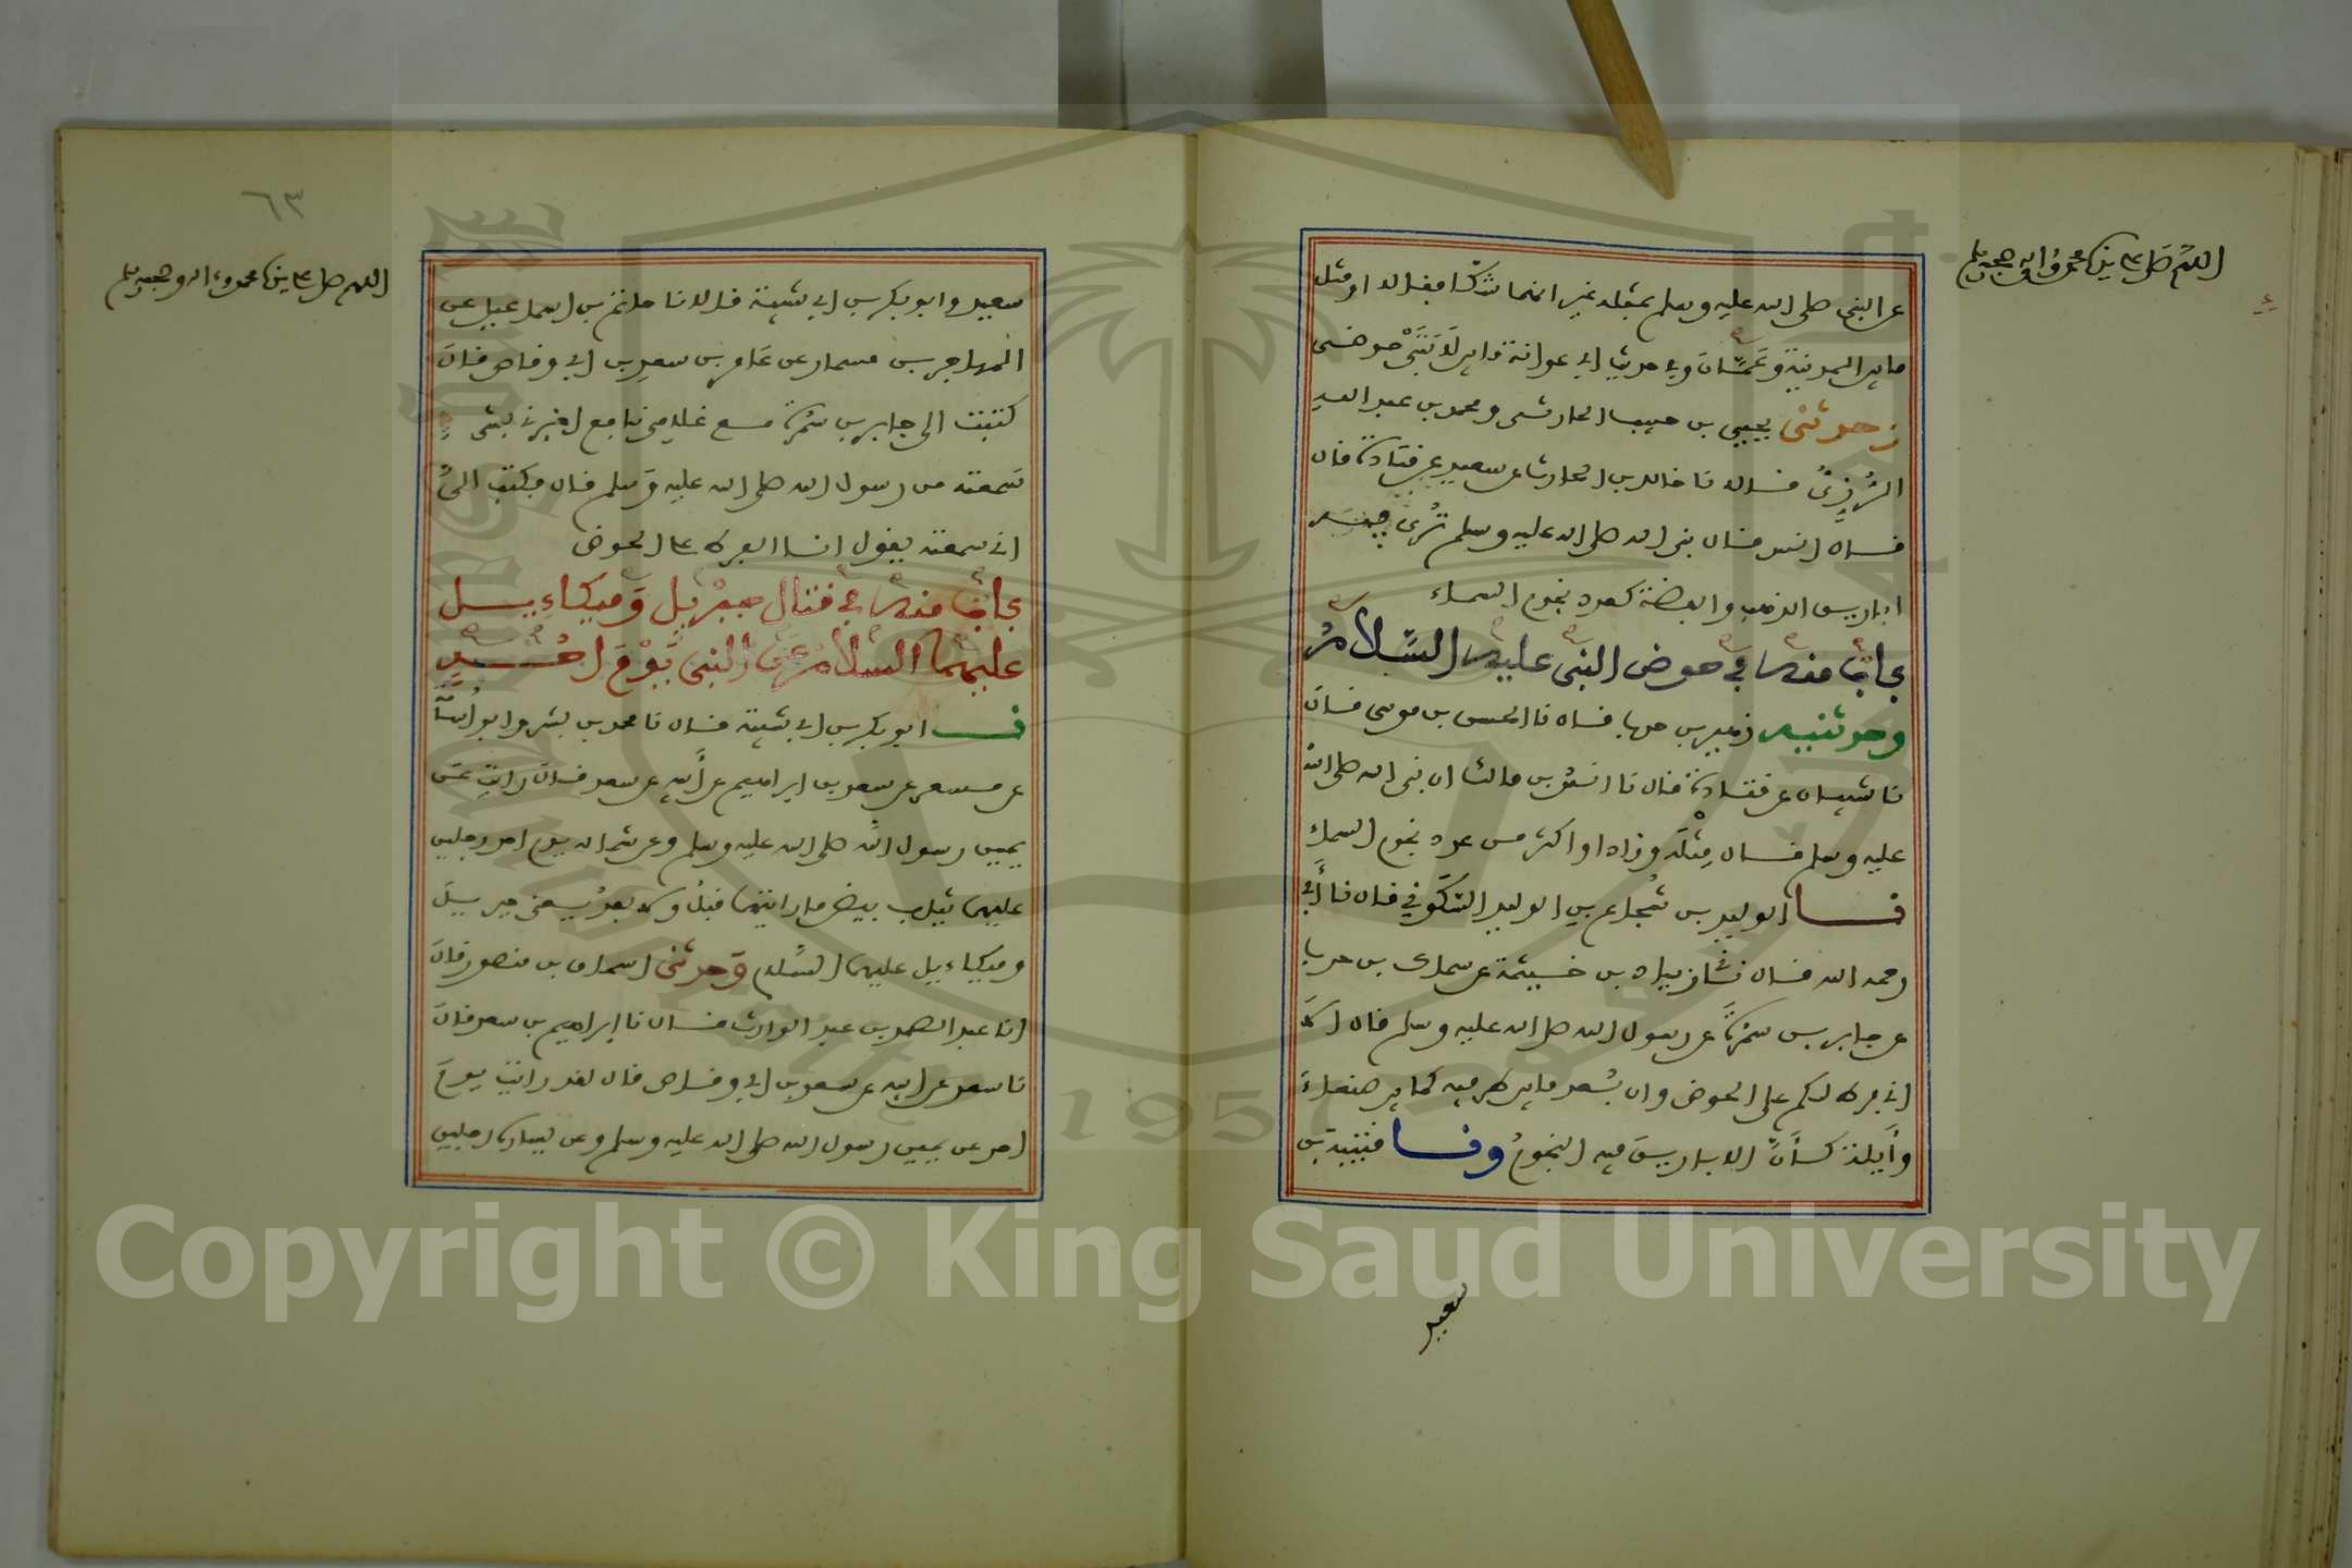 اللهم صل على سيدنا محمد وآله وصحبه وسلم
عن النبي صلى الله عليه وسلم بمثله غير انهما شكا فقالا او مثل
ما بين المدينة وعمان وفي حديث ابي عوانة ما بين لابتي حوضي
وحدثني يحيى بن حبيب الحارثي ومحمد بن عبد الله
الرزي قالا نا خالد بن الحارث عن سعيد عن قتادة قال
قال انس قال نبي الله صلى الله عليه وسلم ترى فيه
اباريق الذهب والفضة كعدد نجوم السماء
باب منه في حوض النبي عليه السلام
وحدثنيه زهير بن حرب قال نا الحسن بن موسى قال
نا شيبان عن قتادة قال نا انس بن مالك ان نبي الله صلى الله
عليه وسلم قال مثله وزاد او اكثر من عدد نجوم السماء
نا الوليد بن شجاع بن الوليد السكوني قال نا أبي
رحمه الله قال نى زياد بن خيثمة عن سماك بن حرب
عن جابر بن سمرة عن رسول الله صلى الله عليه وسلم قال الا
اني فرط لكم على الحوض وان بعد ما بين طرفيه كما بين صنعاء
وأيلة كأن الاباريق فيه النجوم ونا قتيبة بن
سعيد
٦٣
اللهم صل على سيدنا محمد وآله وصحبه وسلم
سعيد وابو بكر بن ابي شيبة قالا نا حاتم بن اسماعيل عن
المهاجر بن مسمار عن عامر بن سعد بن ابي وقاص قال
كتبت الى جابر بن سمرة مع غلامي نافع اخبرني بشيء
سمعته من رسول الله صلى الله عليه وسلم قال فكتب الي
اني سمعته يقول انا الفرط على الحوض
باب منه في قتال جبريل وميكاءيل
عليهما السلام عن النبي يوم احد
نا ابو بكر بن ابي شيبة قال نا محمد بن بشر وابو اسامة
عن مسعر عن سعد بن ابراهيم عن أبيه عن سعد قال رايت عن
يمين رسول الله صلى الله عليه وسلم وعن شماله يوم احد رجلين
عليهما ثياب بيض ما رايتهما قبل ولا بعد يعني جبريل
وميكاءيل عليهما السلام وحدثني اسحاق بن منصور قال
انا عبد الصمد بن عبد الوارث قال نا ابراهيم بن سعد قال
نا سعد عن ابيه عن سعد بن ابي وقاص قال لقد رايت يوم
احد عن يمين رسول الله صلى الله عليه وسلم وعن يساره رجلين
Copyright © King Saud University
1957